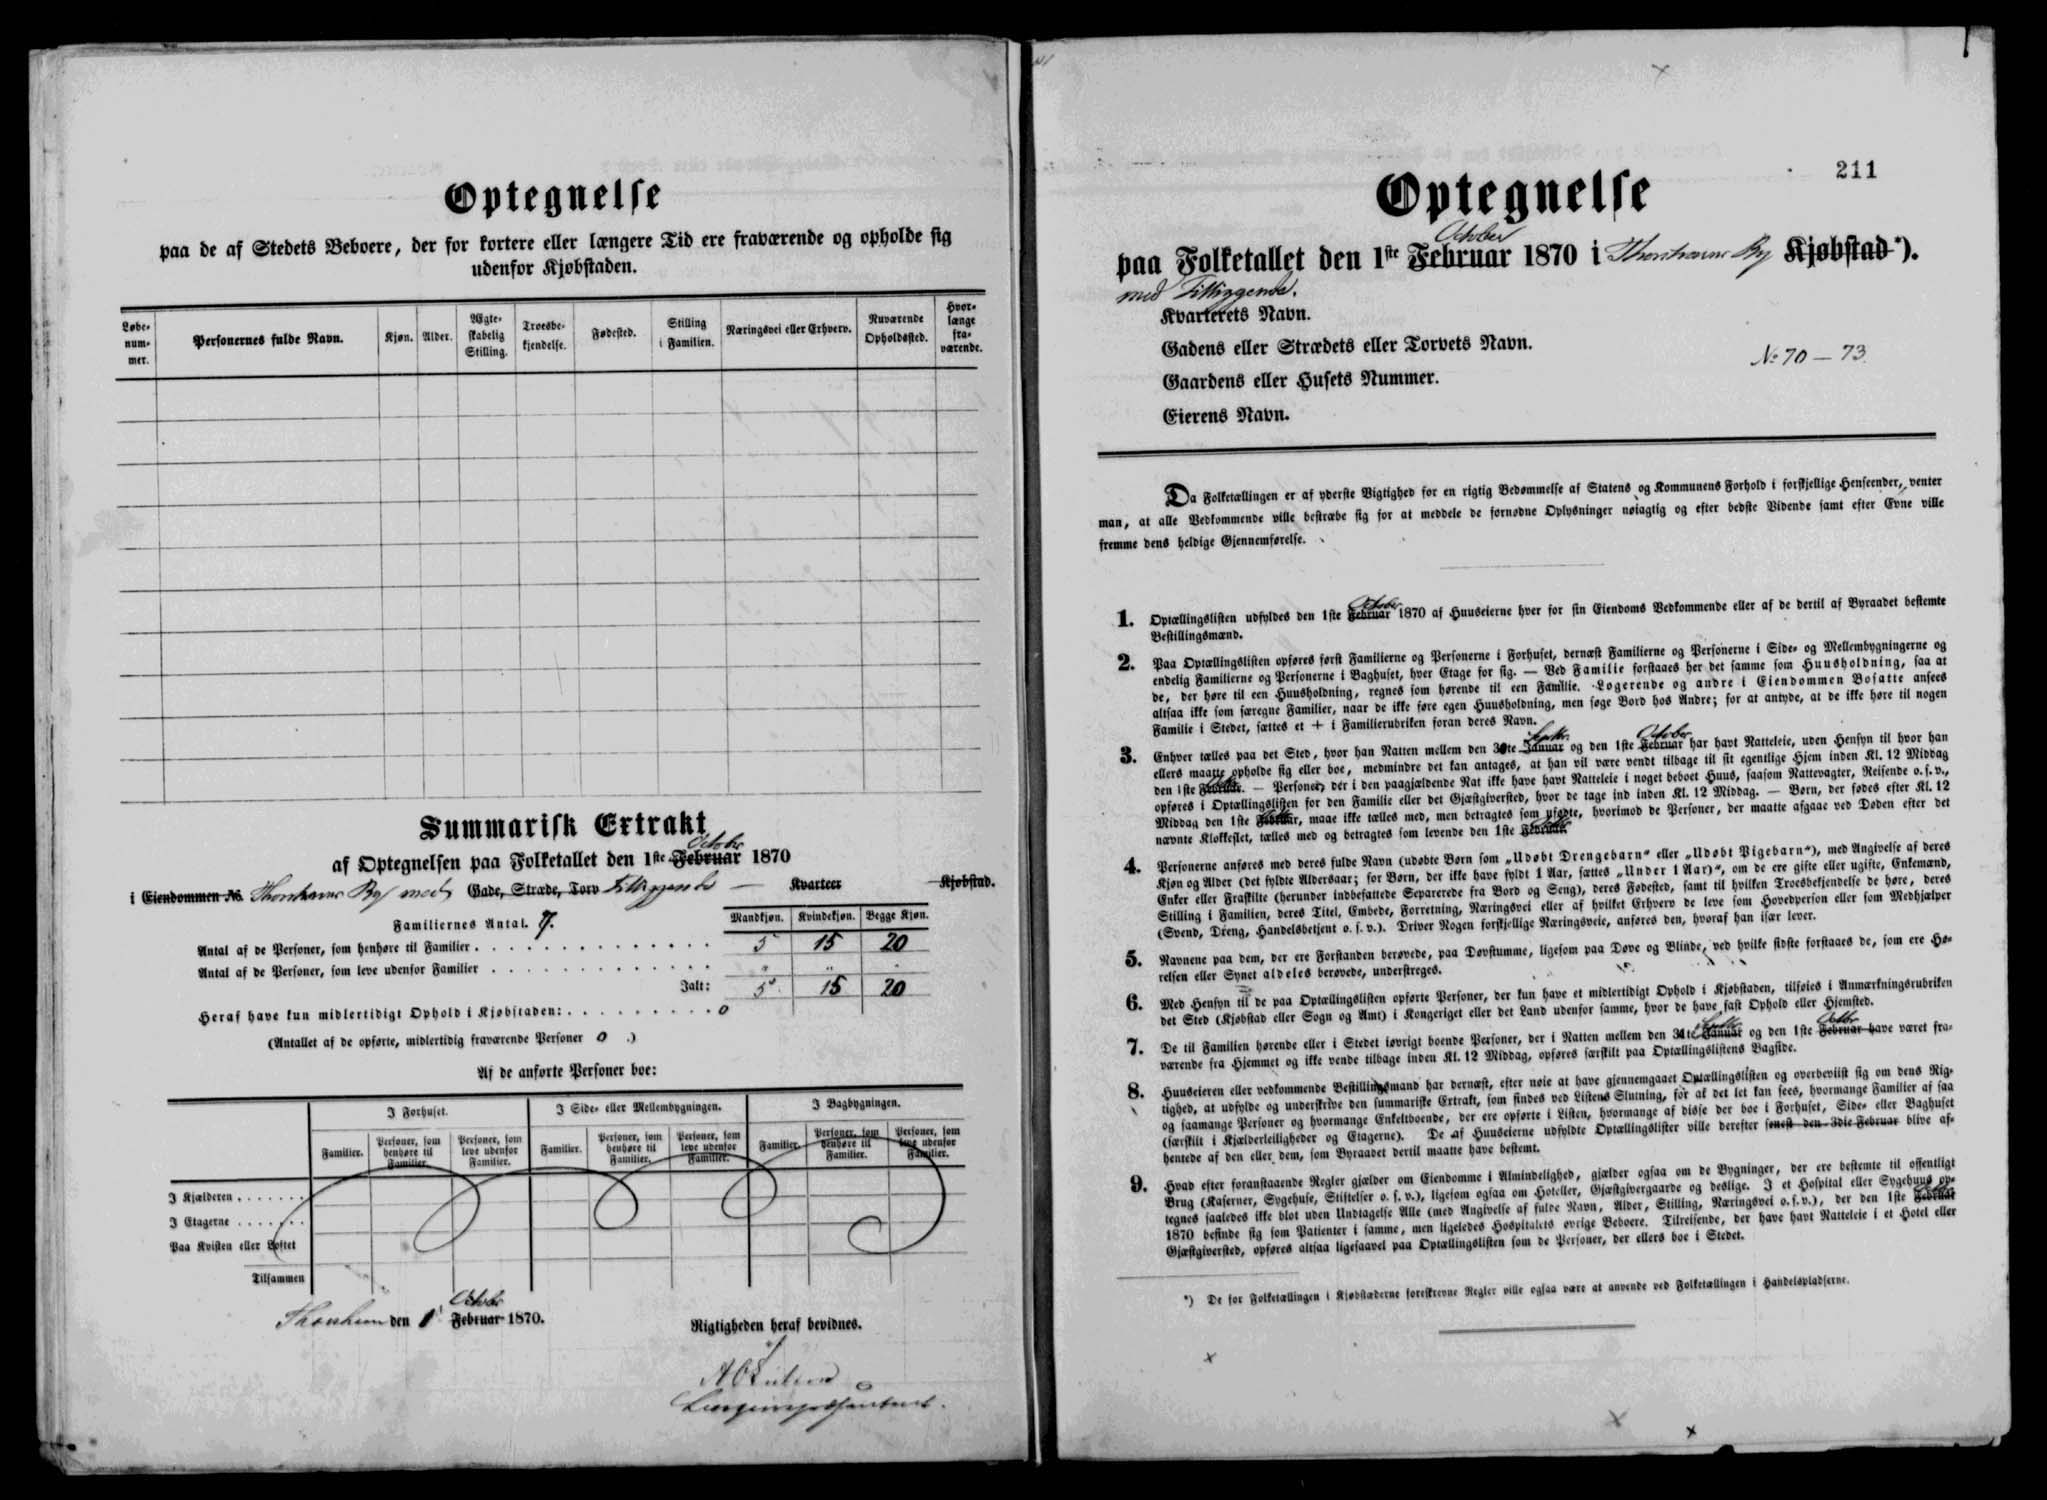 Optegnelse
paa de af Stedets Beboere, der for kortere eller længere Tid ere fraværende og opholde sig
udenfor Kjøbstaden.
Løbe-nummer. Personernes fulde Navn. Kjøn. Alder. Ægteskabelig Stilling. Troesbekjendelse. Fødested. Stilling i Familien. Næringsvei eller Erhverv. Nuværende Opholdssted. Hvorlænge fraværende.
Summarisk Extrakt
October
af Optegnelsen paa Folketallet den 1ste Februar 1870
i Eiendommen No. Thorshavns By med Gade, Stræde, Torv Tilliggende — Kvarteer Kjøbstad.
Mandkjøn. Kvindekjøn. Begge Kjøn.
Familiernes Antal. 7.
Antal af de Personer, som henhøre til Familier 5 15 20
Antal af de Personer, som leve udenfor Familier " " "
Ialt: 5 15 20
Heraf have kun midlertidigt Ophold i Kjøbstaden: 0
(Antallet af de opførte, midlertidig fraværende Personer 0 .)
Af de anførte Personer boe:
I Forhuset. I Side- eller Mellembygningen. I Bagbygningen.
Familier. Personer, som henhøre til Familier. Personer, som leve udenfor Familier. Familier. Personer, som henhøre til Familier. Personer, som leve udenfor Familier. Familier. Personer, som henhøre til Familier. Personer, som leve udenfor Familier.
I Kjælderen
I Etagerne
Paa Kvisten eller Loftet
Tilsammen
October
Thorshavn den 1 Februar 1870.
Rigtigheden heraf bevidnes.
211
Optegnelse
October
paa Folketallet den 1ste Februar 1870 i Thorshavns By Kjøbstad*).
med Tilliggende.
Kvarterets Navn.
Gadens eller Strædets eller Torvets Navn.
No 70 — 73
Gaardens eller Husets Nummer.
Eierens Navn.
Da Folketællingen er af yderste Vigtighed for en rigtig Bedømmelse af Statens og Kommunens Forhold i forskjellige Henseender, venter
man, at alle Vedkommende ville bestræbe sig for at meddele de fornødne Oplysninger nøiagtig og efter bedste Vidende samt efter Evne ville
fremme dens heldige Gjennemførelse.
October
1. Optællingslisten udfyldes den 1ste Februar 1870 af Huuseierne hver for sin Eiendoms Vedkommende eller af de dertil af Byraadet bestemte
Bestillingsmænd.
2. Paa Optællingslisten opføres først Familierne og Personerne i Forhuset, dernæst Familierne og Personerne i Side- og Mellembygningerne og
endelig Familierne og Personerne i Baghuset, hver Etage for sig. — Ved Familie forstaaes her det samme som Huusholdning, saa at
de, der høre til een Huusholdning, regnes som hørende til een Familie. Logerende og andre i Eiendommen Bosatte ansees
altsaa ikke som særegne Familier, naar de ikke føre egen Huusholdning, men søge Bord hos Andre; for at antyde, at de ikke høre til nogen
Familie i Stedet, sættes et + i Familierubriken foran deres Navn.
Septbr. October
3. Enhver tælles paa det Sted, hvor han Natten mellem den 30te Januar og den 1ste Februar har havt Natteleie, uden Hensyn til hvor han
ellers maatte opholde sig eller boe, medmindre det kan antages, at han vil være vendt tilbage til sit egentlige Hjem inden Kl. 12 Middag
den 1ste Februar. — Personer, der i den paagjældende Nat ikke have havt Natteleie i noget beboet Huus, saasom Nattevagter, Reisende o. s. v.,
opføres i Optællingslisten for den Familie eller det Gjæstgiversted, hvor de tage ind inden Kl. 12 Middag. — Børn, der fødes efter Kl. 12
Middag den 1ste Februar, maae ikke tælles med, men betragtes som ufødte, hvorimod de Personer, der maatte afgaae ved Døden efter det
nævnte Klokkeslet, tælles med og betragtes som levende den 1ste Februar.
4. Personerne anføres med deres fulde Navn (udøbte Børn som „Udøbt Drengebarn“ eller „Udøbt Pigebarn“), med Angivelse af deres
Kjøn og Alder (det fyldte Aldersaar; for Børn, der ikke have fyldt 1 Aar, sættes „Under 1 Aar)“, om de ere gifte eller ugifte, Enkemænd,
Enker eller Fraskilte (herunder indbefattede Separerede fra Bord og Seng), deres Fødested, samt til hvilken Troesbekjendelse de høre, deres
Stilling i Familien, deres Titel, Embede, Forretning, Næringsvei eller af hvilket Erhverv de leve som Hovedperson eller som Medhjælper
(Svend, Dreng, Handelsbetjent o. s. v.). Driver Nogen forskjellige Næringsveie, anføres den, hvoraf han især lever.
5. Navnene paa dem, der ere Forstanden berøvede, paa Døvstumme, ligesom paa Døve og Blinde, ved hvilke sidste forstaaes de, som ere Hø-
relsen eller Synet aldeles berøvede, understreges.
6. Med Hensyn til de paa Optællingslisten opførte Personer, der kun have et midlertidigt Ophold i Kjøbstaden, tilføies i Anmærkningsrubriken
det Sted (Kjøbstad eller Sogn og Amt) i Kongeriget eller det Land udenfor samme, hvor de have fast Ophold eller Hjemsted.
Septbr. Octbr.
7. De til Familien hørende eller i Stedet iøvrigt boende Personer, der i Natten mellem den 31te Januar og den 1ste Februar have været fra-
værende fra Hjemmet og ikke vende tilbage inden Kl. 12 Middag, opføres særskilt paa Optællingslistens Bagside.
8. Huuseieren eller vedkommende Bestillingsmand har dernæst, efter nøie at have gjennemgaaet Optællingslisten og overbeviist sig om dens Rig-
tighed, at udfylde og underskrive den summariske Extrakt, som findes ved Listens Slutning, for at det let kan sees, hvormange Familier af saa
og saamange Personer og hvormange Enkeltboende, der ere opførte i Listen, hvormange af disse der boe i Forhuset, Side- eller Baghuset
(særskilt i Kjælderleiligheder og Etagerne). De af Huuseierne udfyldte Optællingslister ville derefter senest den 3die Februar blive af-
hentede af den eller dem, som Byraadet dertil maatte have bestemt.
9. Hvad efter foranstaaende Regler gjælder om Eiendomme i Almindelighed, gjælder ogsaa om de Bygninger, der ere bestemte til offentligt
Brug (Kaserner, Sygehuse, Stiftelser o. s. v.), ligesom ogsaa om Hoteller, Gjæstgivergaarde og deslige. I et Hospital eller Sygehuus op-
tegnes saaledes ikke blot uden Undtagelse Alle (med Angivelse af fulde Navn, Alder, Stilling, Næringsvei o. s. v.), der den 1ste Februar
1870 befinde sig som Patienter i samme, men ligeledes Hospitalets øvrige Beboere. Tilreisende, der have havt Natteleie i et Hotel eller
Gjæstgiversted, opføres altsaa ligesaavel paa Optællingslisten som de Personer, der ellers boe i Stedet.
*) De for Folketællingen i Kjøbstæderne foreskrevne Regler ville ogsaa være at anvende ved Folketællingen i Handelspladserne.